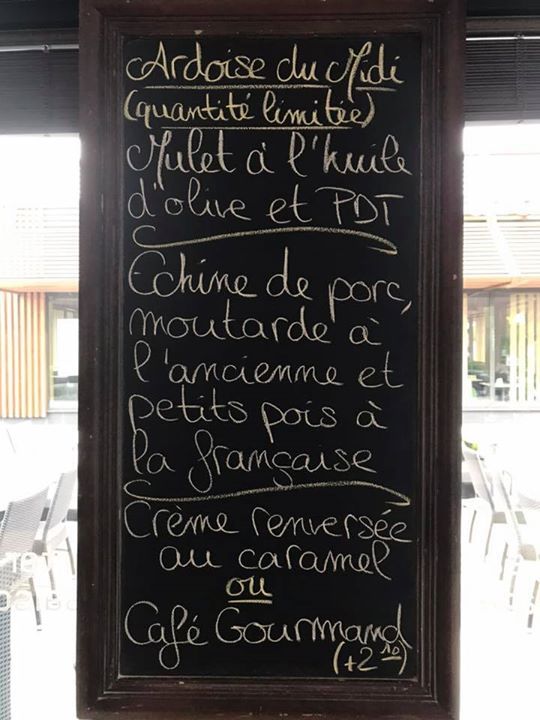 Ardoise du Midi
(quantité limitée)
Mulet à l'huile
d'olive et PDT
Echine de porc,
moutarde à
l'ancienne et
petits pois à
la française
Crème renversée
au caramel
ou
Café Gourmand
(+2¹⁰)